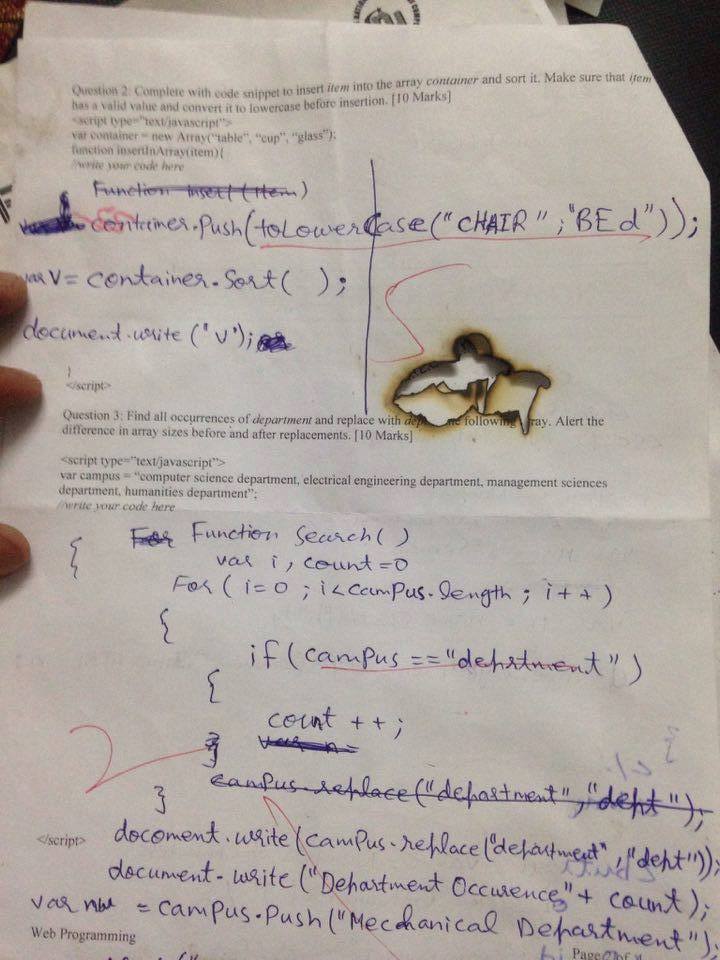 Question 2: Complete with code snippet to insert item into the array container and sort it. Make sure that item
has a valid value and convert it to lowercase before insertion. [10 Marks]
<script type="text/javascript">
var container = new Array("table", "cup", "glass");
function insertInArray(item){
//write your code here
Function insert (item)
container.Push(toLowerCase("CHAIR" ; "BEd"));
var V = container.Sort( );
document.write ("V");
}
</script>
5
Question 3: Find all occurrences of department and replace with following array. Alert the
difference in array sizes before and after replacements. [10 Marks]
<script type="text/javascript">
var campus = "computer science department, electrical engineering department, management sciences
department, humanities department";
//write your code here
For Function Search( )
{
var i, count=0
For ( i=0 ; i<camPus.length ; i++ )
{
if ( camPus == "deprtment" )
{
count ++;
}
var n=
2
camPus.replace("department","dept");
}
</script>
docoment.write(camPus.replace("department","dept"));
document.write ("Department Occurence"+ count);
var nw = camPus.Push("Mecchanical Department");
Web Programming
Page